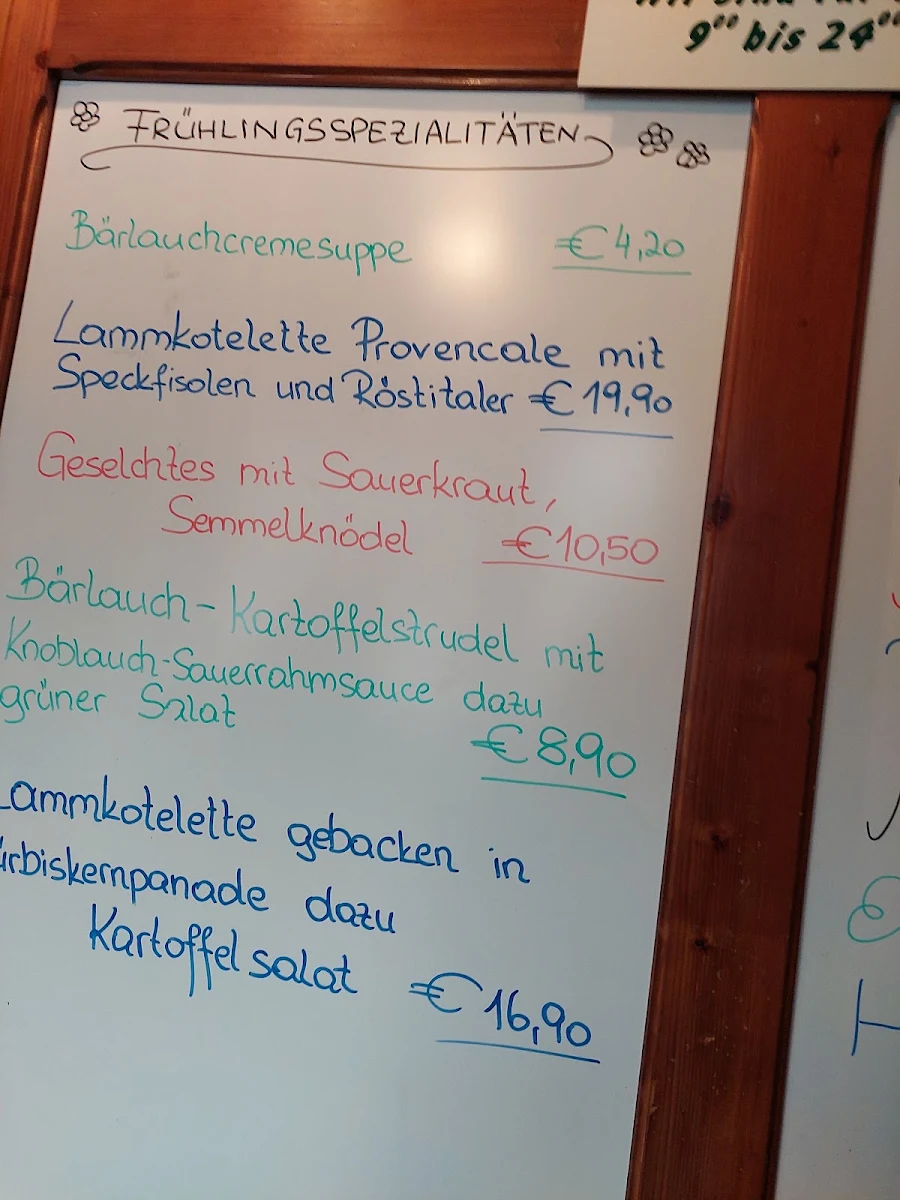 9⁰⁰ bis 24⁰⁰
FRÜHLINGSSPEZIALITÄTEN
Bärlauchcremesuppe €4,20
Lammkotelette Provencale mit
Speckfisolen und Röstitaler € 19,90
Geselchtes mit Sauerkraut,
Semmelknödel €10,50
Bärlauch-Kartoffelstrudel mit
Knoblauch-Sauerrahmsauce dazu
grüner Salat
€8,90
Lammkotelette gebacken in
ürbiskernpanade dazu
Kartoffelsalat € 16,90